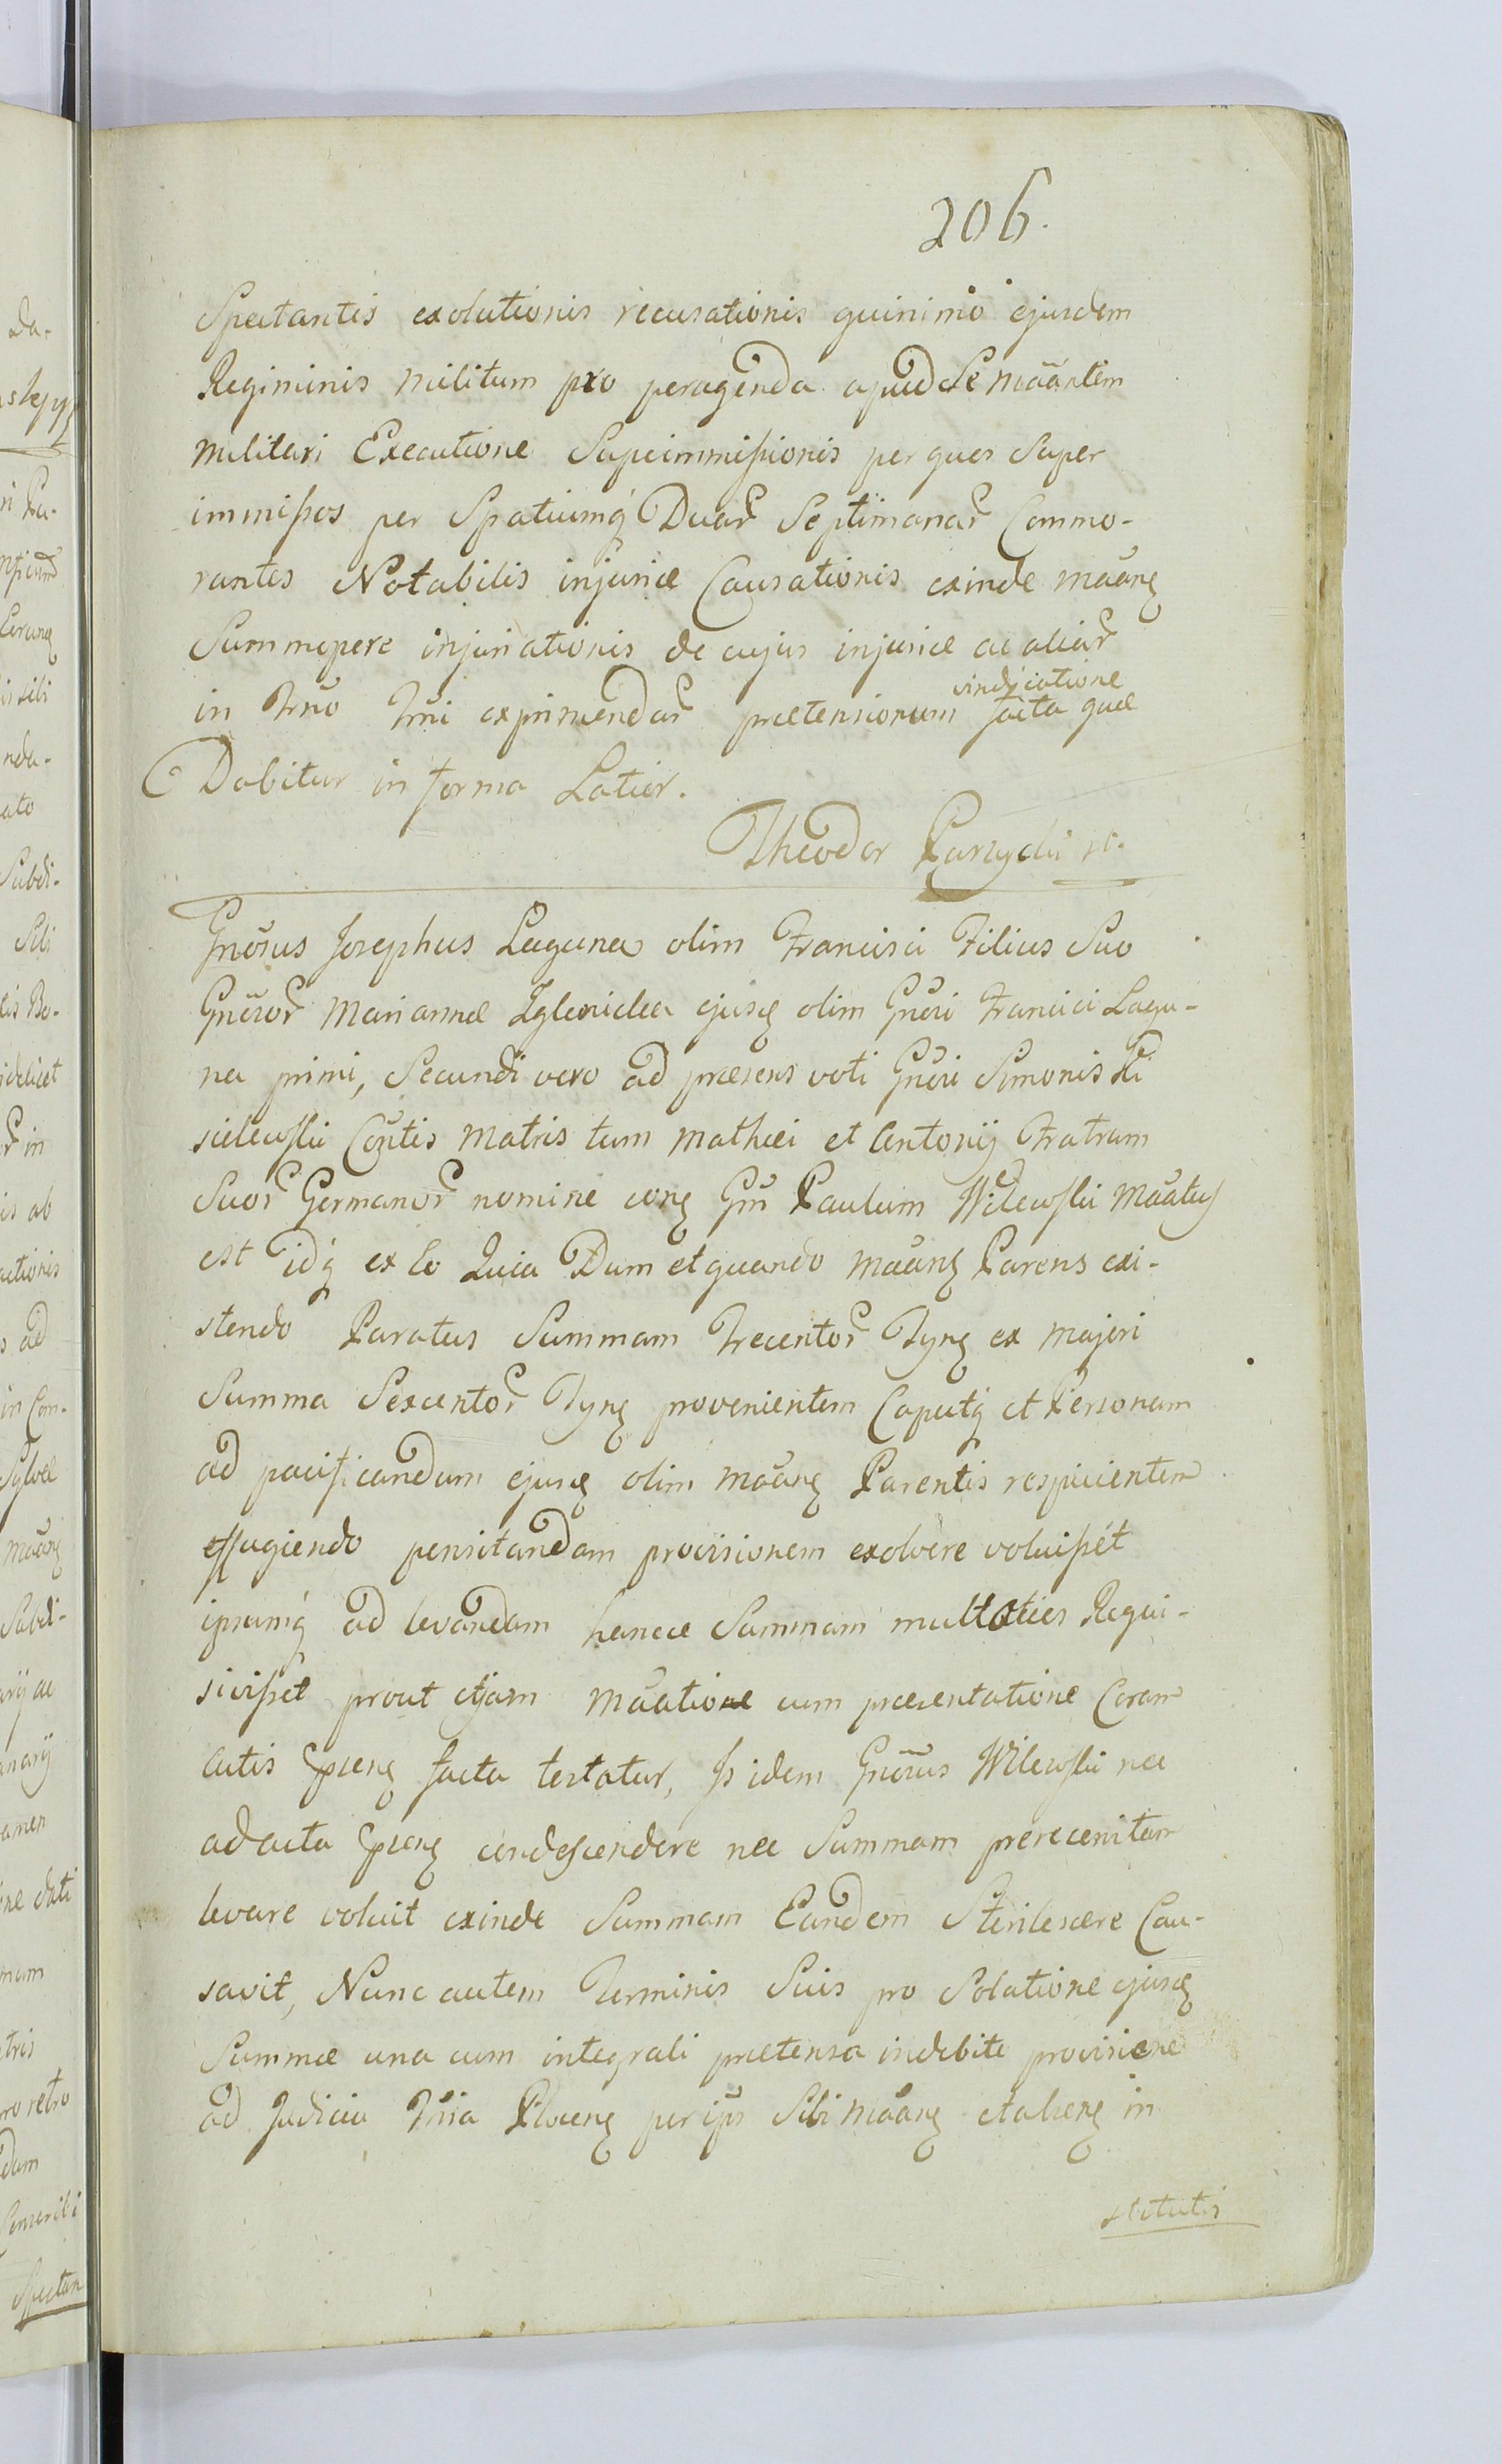 206.
Spectantis exolutionis recusationis quinimo ejusdem
Regiminis militum pro peragenda apud Se mãantẽm
militari Executione Superimmißionis per quos Super
immißos per Spatiumq́ Duar̃ Septimanar̃ Commo-
rantes Notabilis injuriæ Causationis exinde mãanẽ
Summopere injuriationis de cujus injuriæ ac aliar̃
in Trño Trñi exprimendar̃ prætensionum vindicatione facta quæ
Dabitur in forma Latior.
Theodor
Gnõsus Josephus Laguna olim Francisci Filius Suo
Gnõsor̃ Mariannæ ejusq olim Gnõsi Francisci Lagu-
na primi, Secundi vero ad præsens voti Gnõsi Simonis Ki
sielewski Cõrtis Matris tum Mathæi et Antonij Fratrum
Suor̃ Germanor̃ nomine conq Gñm Paulum Wilewski mãatus
est idq́ ex Eo Quia Dum et quando mãanẽ Parens exi-
stendo Paratus Summam Trecentor̃ Tynẽ ex majori
Summa Sexcentor̃ Tynẽ provenientem Caputq́ et Personam
ad pacificandum ejusq olim mãanẽ Parentis respicientem
effugiendo pensitandam provisionem exolvere voluißet
ipsumq́ ad levandam hancce Summam multoties Requi-
sivißet prout etjam mãatione cum præsentatione Coram
Actis facta testatur, Is idem Gnõsus Wilewski nec
ad acta condescendere nec Summam prerecensitam
levare voluit exinde Summam Eandem Sterilescere Cau-
savit, Nunc autem Terminis Suis pro Solutione ejusq
Summæ una cum integrali prætensa indebite provisione
ad Judicia Trr̃ia Plocenẽ per ipm̃ Sibi mãanẽ et alienẽ in
stitutis